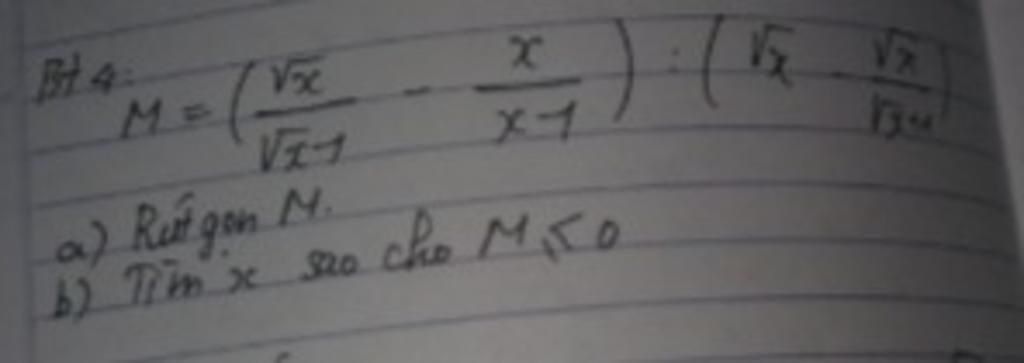 Bt 4:
M = (√x/(√x-1) - x/(x-1)) : (√x - √x/(√x+1))
a) Rút gọn M.
b) Tìm x sao cho M ≤ 0